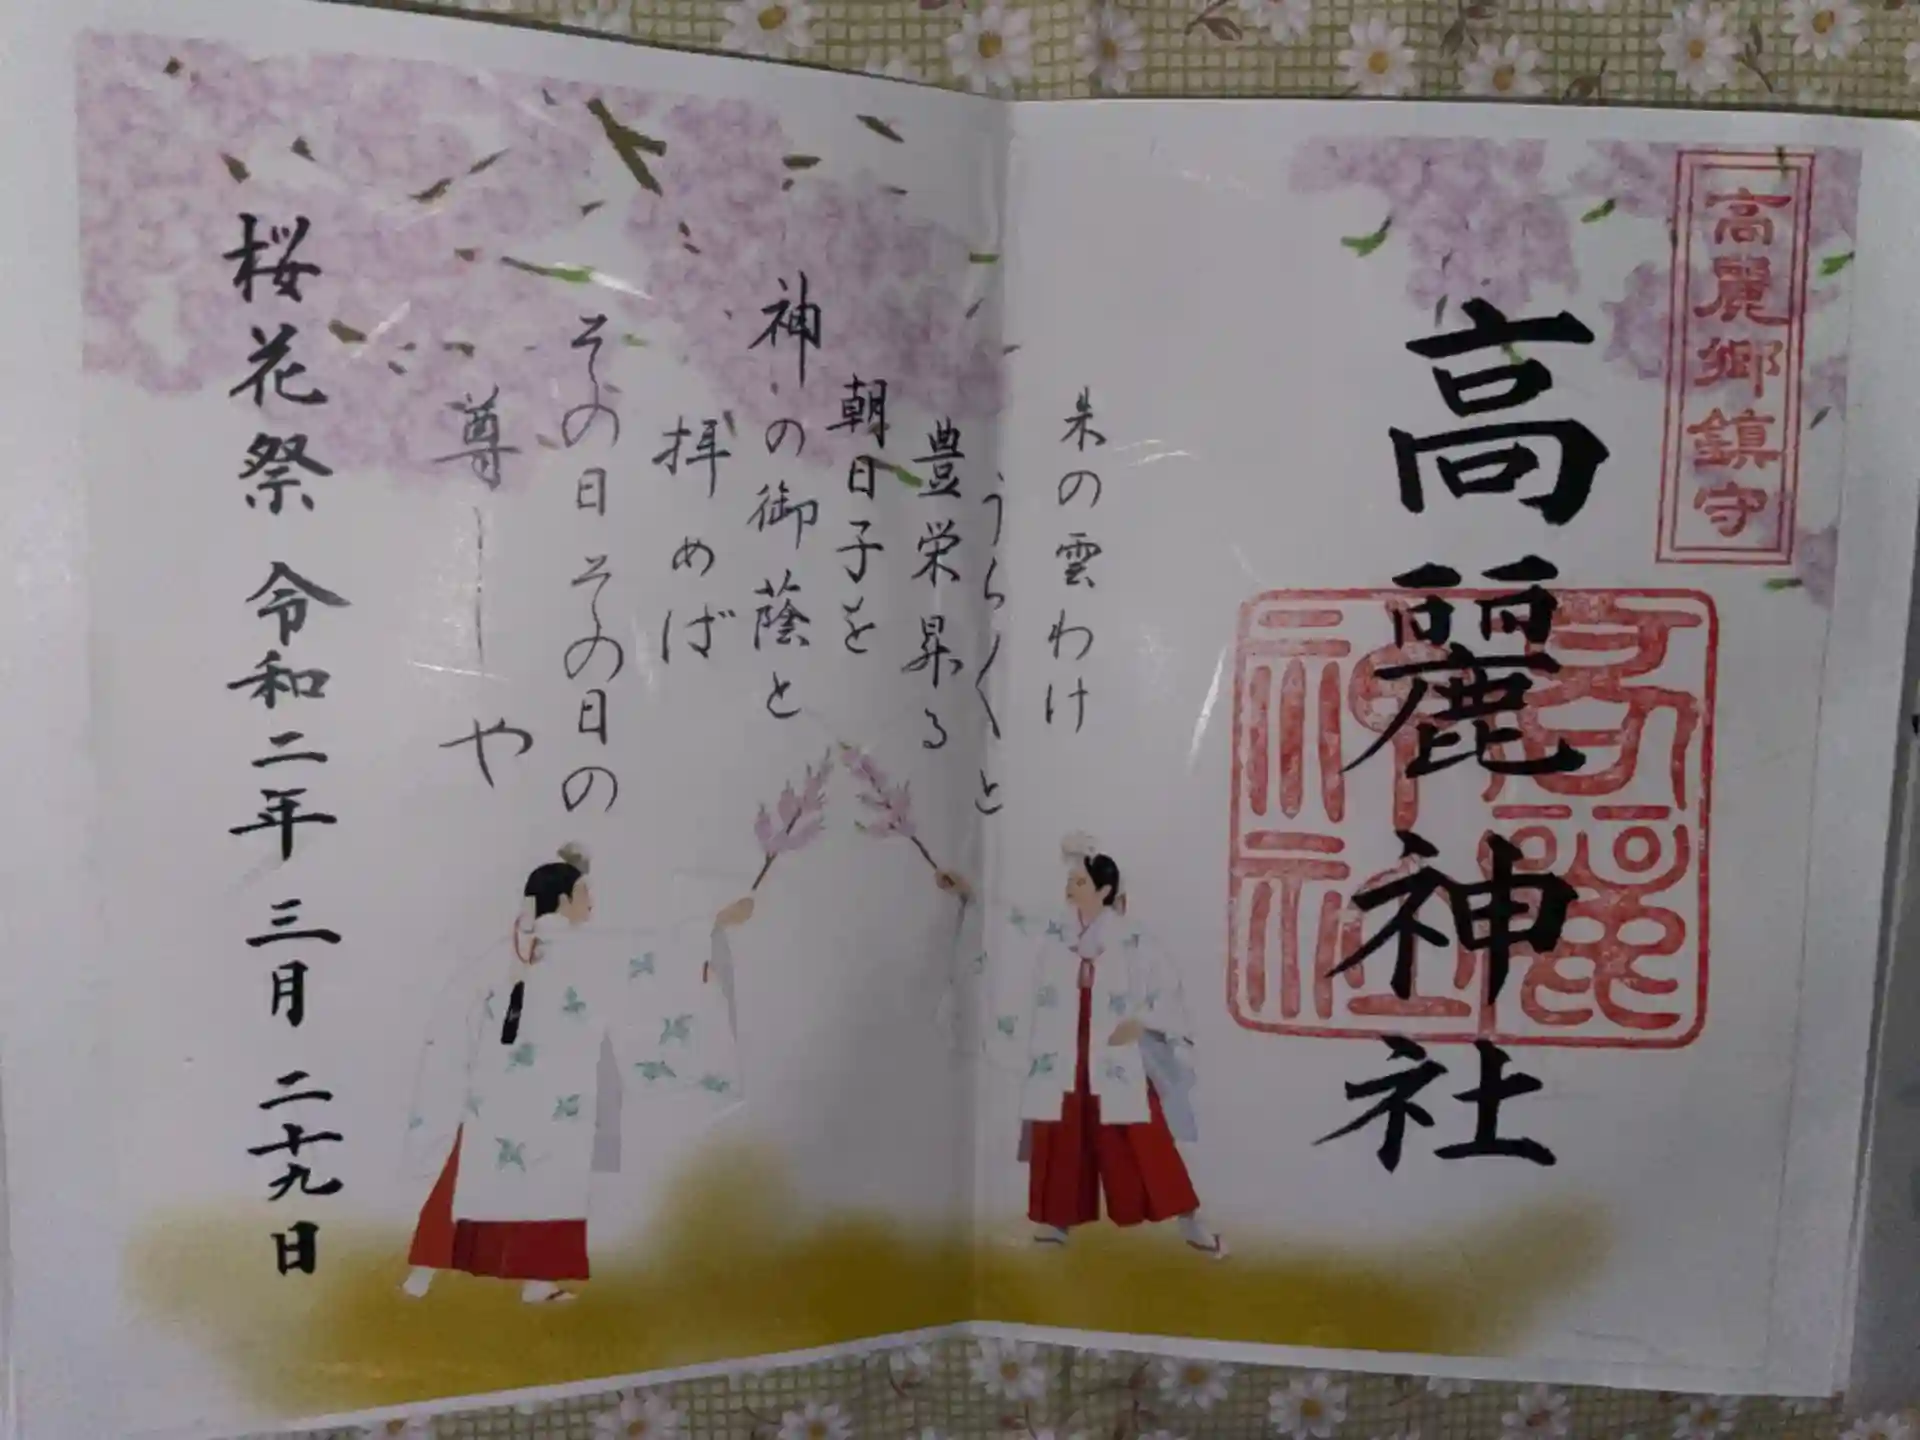 高麗郷鎮守
高麗神社
高麗神社
朱の雲わけ
うら〱と
豊栄昇る
朝日子を
神の御蔭と
拝めば
その日その日の
尊しや
桜花祭 令和二年 三月 二十九日